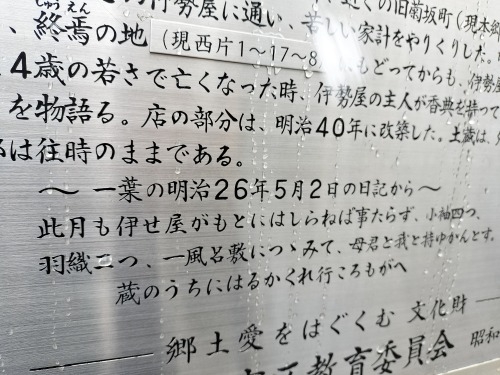 の伊勢屋に通い、苦しい家計をやりくりした。
近くの旧菊坂町(現本郷
しゅうえん
、終焉の地(現西片1~17~8
もどってからも、伊勢屋
4歳の若さで亡くなった時、伊勢屋の主人が香典を持って
を物語る。店の部分は、明治40年に改築した。土蔵は、
は往時のままである。
~ 一葉の明治26年5月2日の日記から ~
此月も伊せ屋がもとにはしらねば事たらず、小袖四つ、
羽織二つ、一風呂敷につゝみて、母君と我と持ゆかんとす。
蔵のうちにはるかくれ行ころもがへ
郷土愛をはぐくむ 文化財
教育委員会 昭和